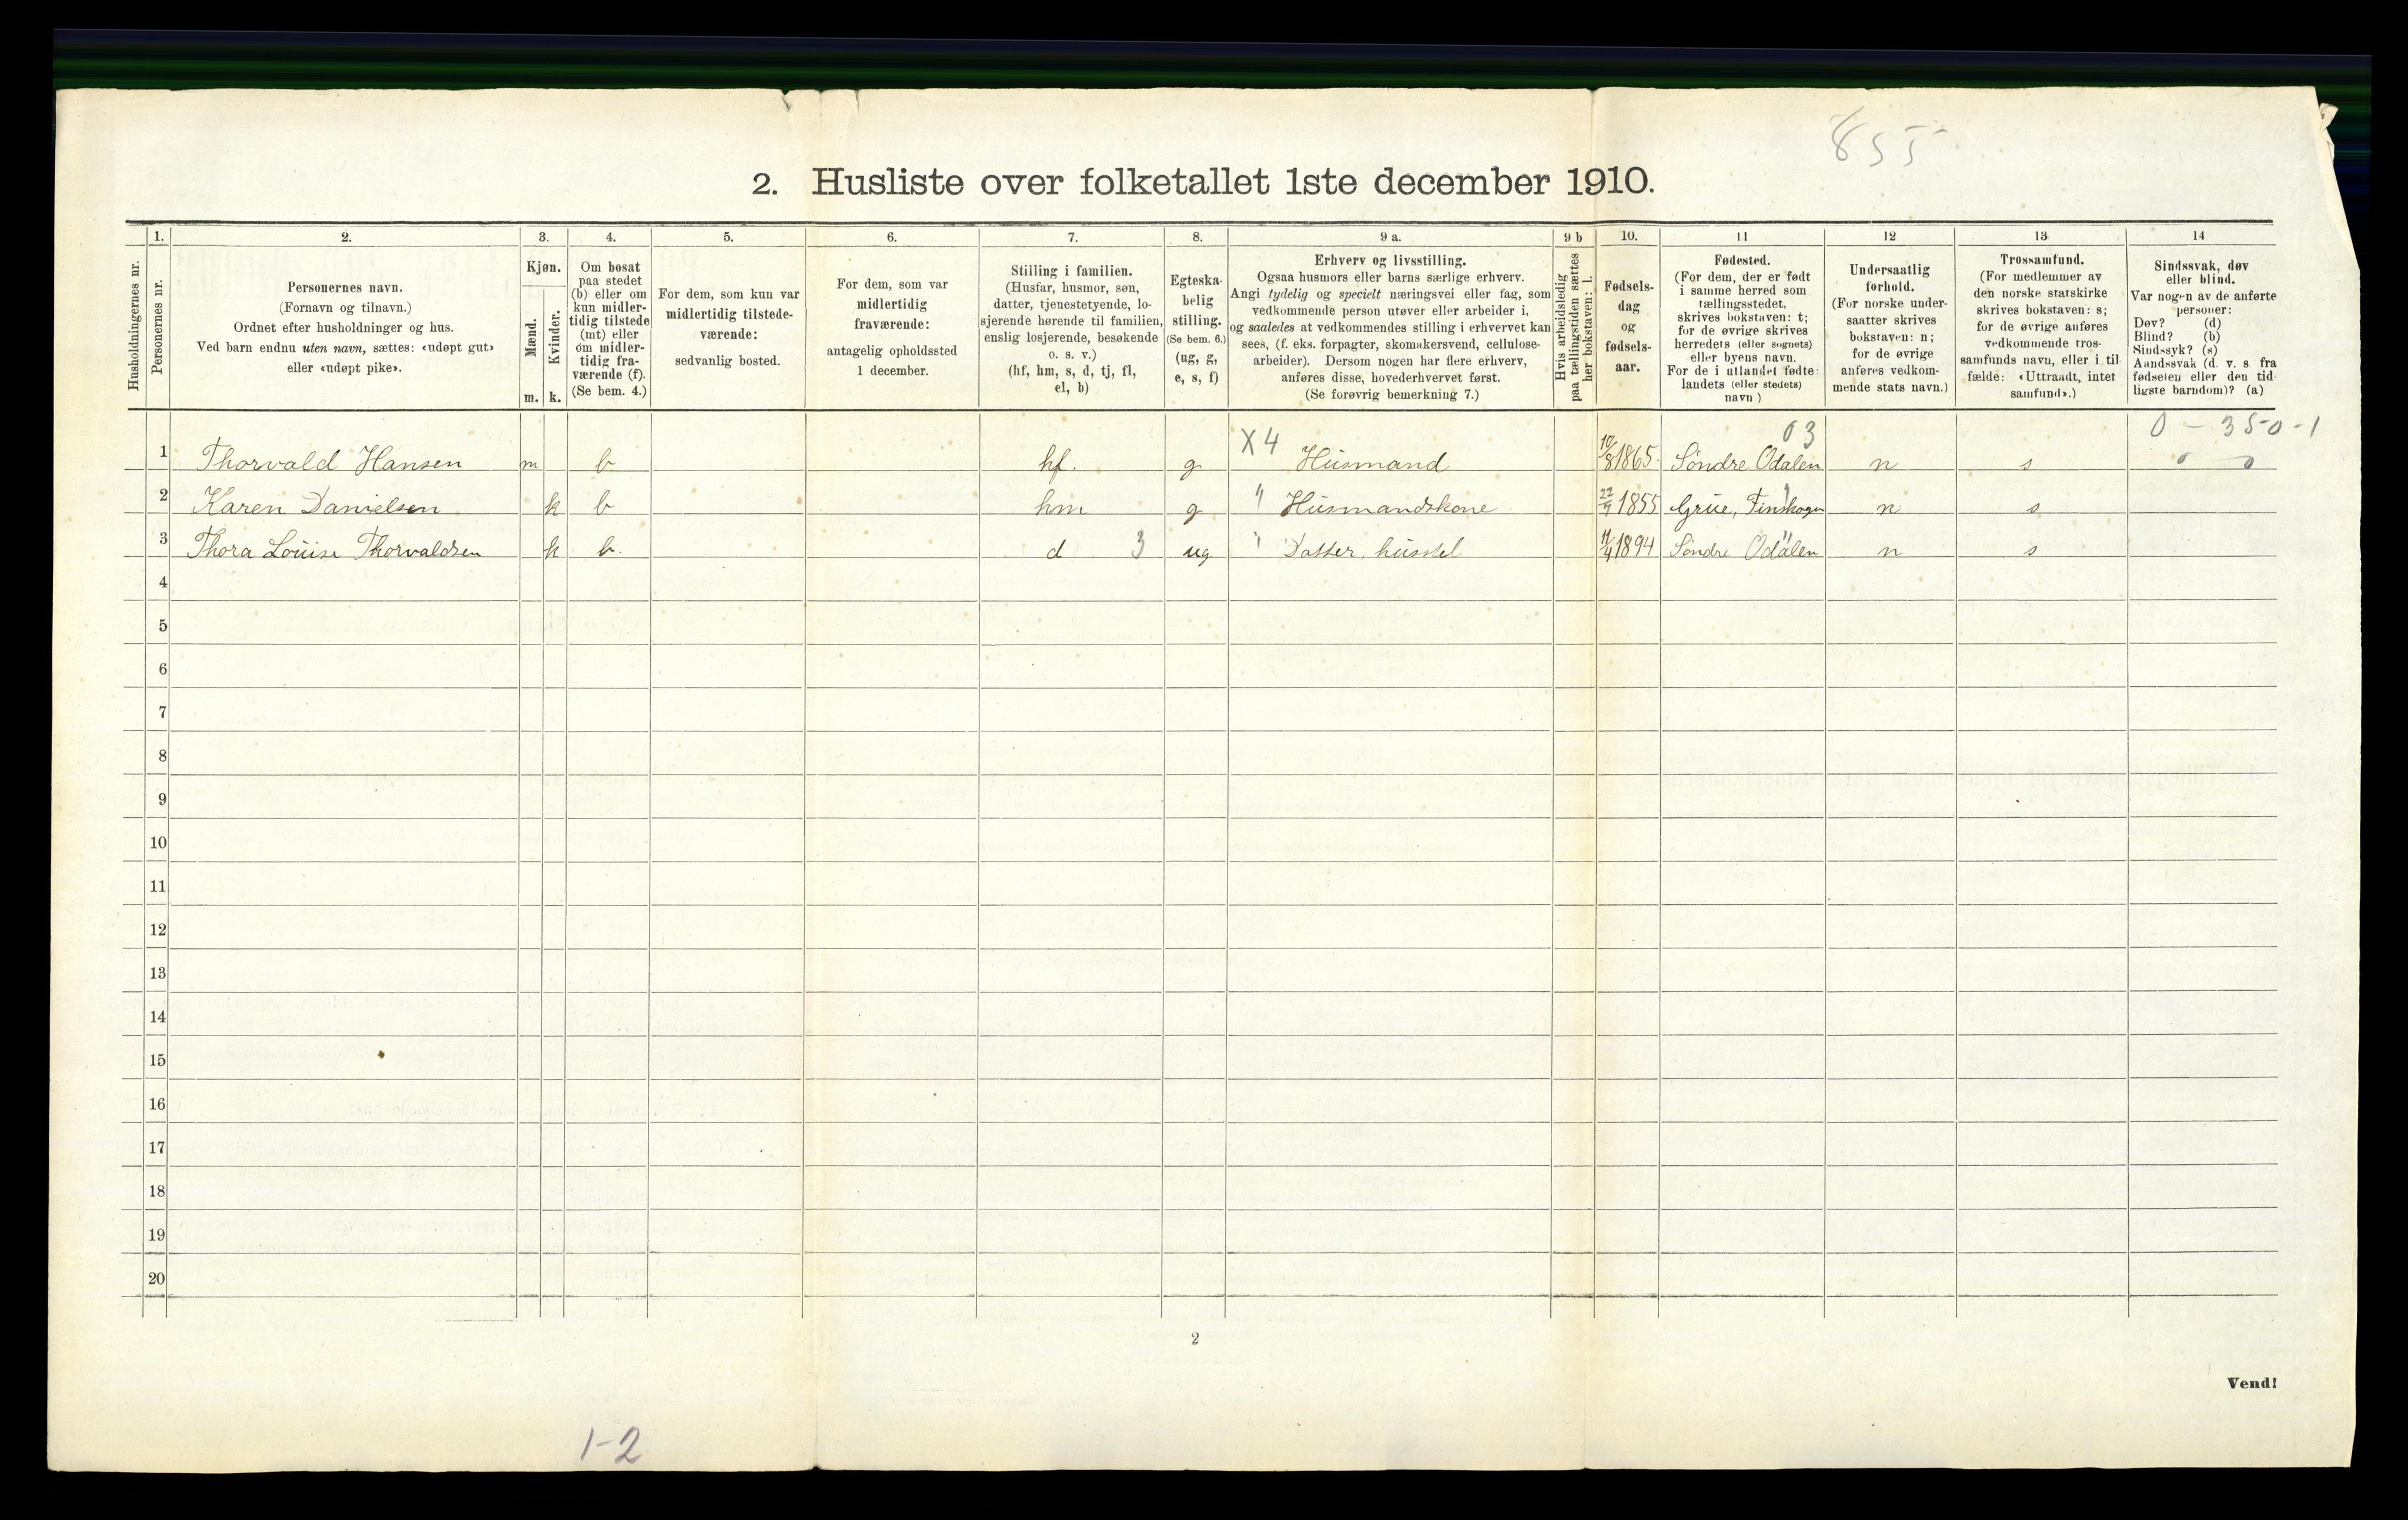 855
2. Husliste over folketallet 1ste december 1910.
Husholdningernes nr.
1.
Personernes nr.
2.
Personernes navn.
(Fornavn og tilnavn.)
Ordnet efter husholdninger og hus.
Ved barn endnu uten navn, sættes: «udøpt gut»
eller «udøpt pike».
3.
Kjøn.
Mænd.
Kvinder.
m.
k.
4.
Om bosat
paa stedet
(b) eller om
kun midler-
tidig tilstede
(mt) eller
om midler-
tidig fra-
værende (f).
(Se bem. 4.)
5.
For dem, som kun var
midlertidig tilstede-
værende:
sedvanlig bosted.
6.
For dem, som var
midlertidig
fraværende:
antagelig opholdssted
1 december.
7.
Stilling i familien.
(Husfar, husmor, søn,
datter, tjenestetyende, lo-
sjerende hørende til familien,
enslig losjerende, besøkende
o. s. v.)
(hf, hm, s, d, tj, fl,
el, b)
8.
Egteska-
belig
stilling.
(Se bem. 6.)
(ug, g,
e, s, f)
9 a.
Erhverv og livsstilling.
Ogsaa husmors eller barns særlige erhverv.
Angi tydelig og specielt næringsvei eller fag, som
vedkommende person utøver eller arbeider i,
og saaledes at vedkommendes stilling i erhvervet kan
sees, (f. eks. forpagter, skomakersvend, cellulose-
arbeider). Dersom nogen har flere erhverv,
anføres disse, hovederhvervet først.
(Se forøvrig bemerkning 7.)
9 b
Hvis arbeidsledig
paa tællingstiden sættes
her bokstaven: l.
10.
Fødsels-
dag
og
fødsels-
aar.
11
Fødested.
(For dem, der er født
i samme herred som
tællingsstedet,
skrives bokstaven: t;
for de øvrige skrives
herredets (eller sognets)
eller byens navn.
For de i utlandet fødte:
landets (eller stedets)
navn )
12
Undersaatlig
forhold.
(For norske under-
saatter skrives
bokstaven: n;
for de øvrige
anføres vedkom-
mende stats navn.)
13
Trossamfund.
(For medlemmer av
den norske statskirke
skrives bokstaven: s;
for de øvrige anføres
vedkommende tros-
samfunds navn, eller i til
fælde: «Uttraadt, intet
samfund».)
14
Sindssvak, døv
eller blind.
Var nogen av de anførte
personer:
Døv? (d)
Blind? (b)
Sindssyk? (s)
Aandssvak (d. v. s fra
fødselen eller den tid-
ligste barndom)? (a)
X4 03 0 - 350-1
1 Thorvald Hansen m b hf. g Husmand 10/8 1865. Søndre Odalen n s
2 Karen Danielsen k b hm g " Husmandskone 1855 Grue, Finskogn n s
3 Thora Louise Thorvaldsen k b. d 3 ug " Datter, husstel 11/4 1894 Søndre Odalen n s
4
5
6
7
8
9
10
11
12
13
14
15
16
17
18
19
20
2
Vend!
1-2